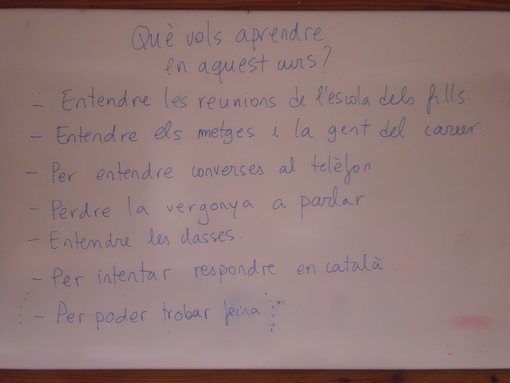 Què vols aprendre
en aquest curs?
- Entendre les reunions de l'escola dels fills.
- Entendre els metges i la gent del carrer.
- Per entendre converses al telèfon
- Perdre la vergonya a parlar.
- Entendre les classes.
- Per intentar respondre en català.
- Per poder trobar feina.